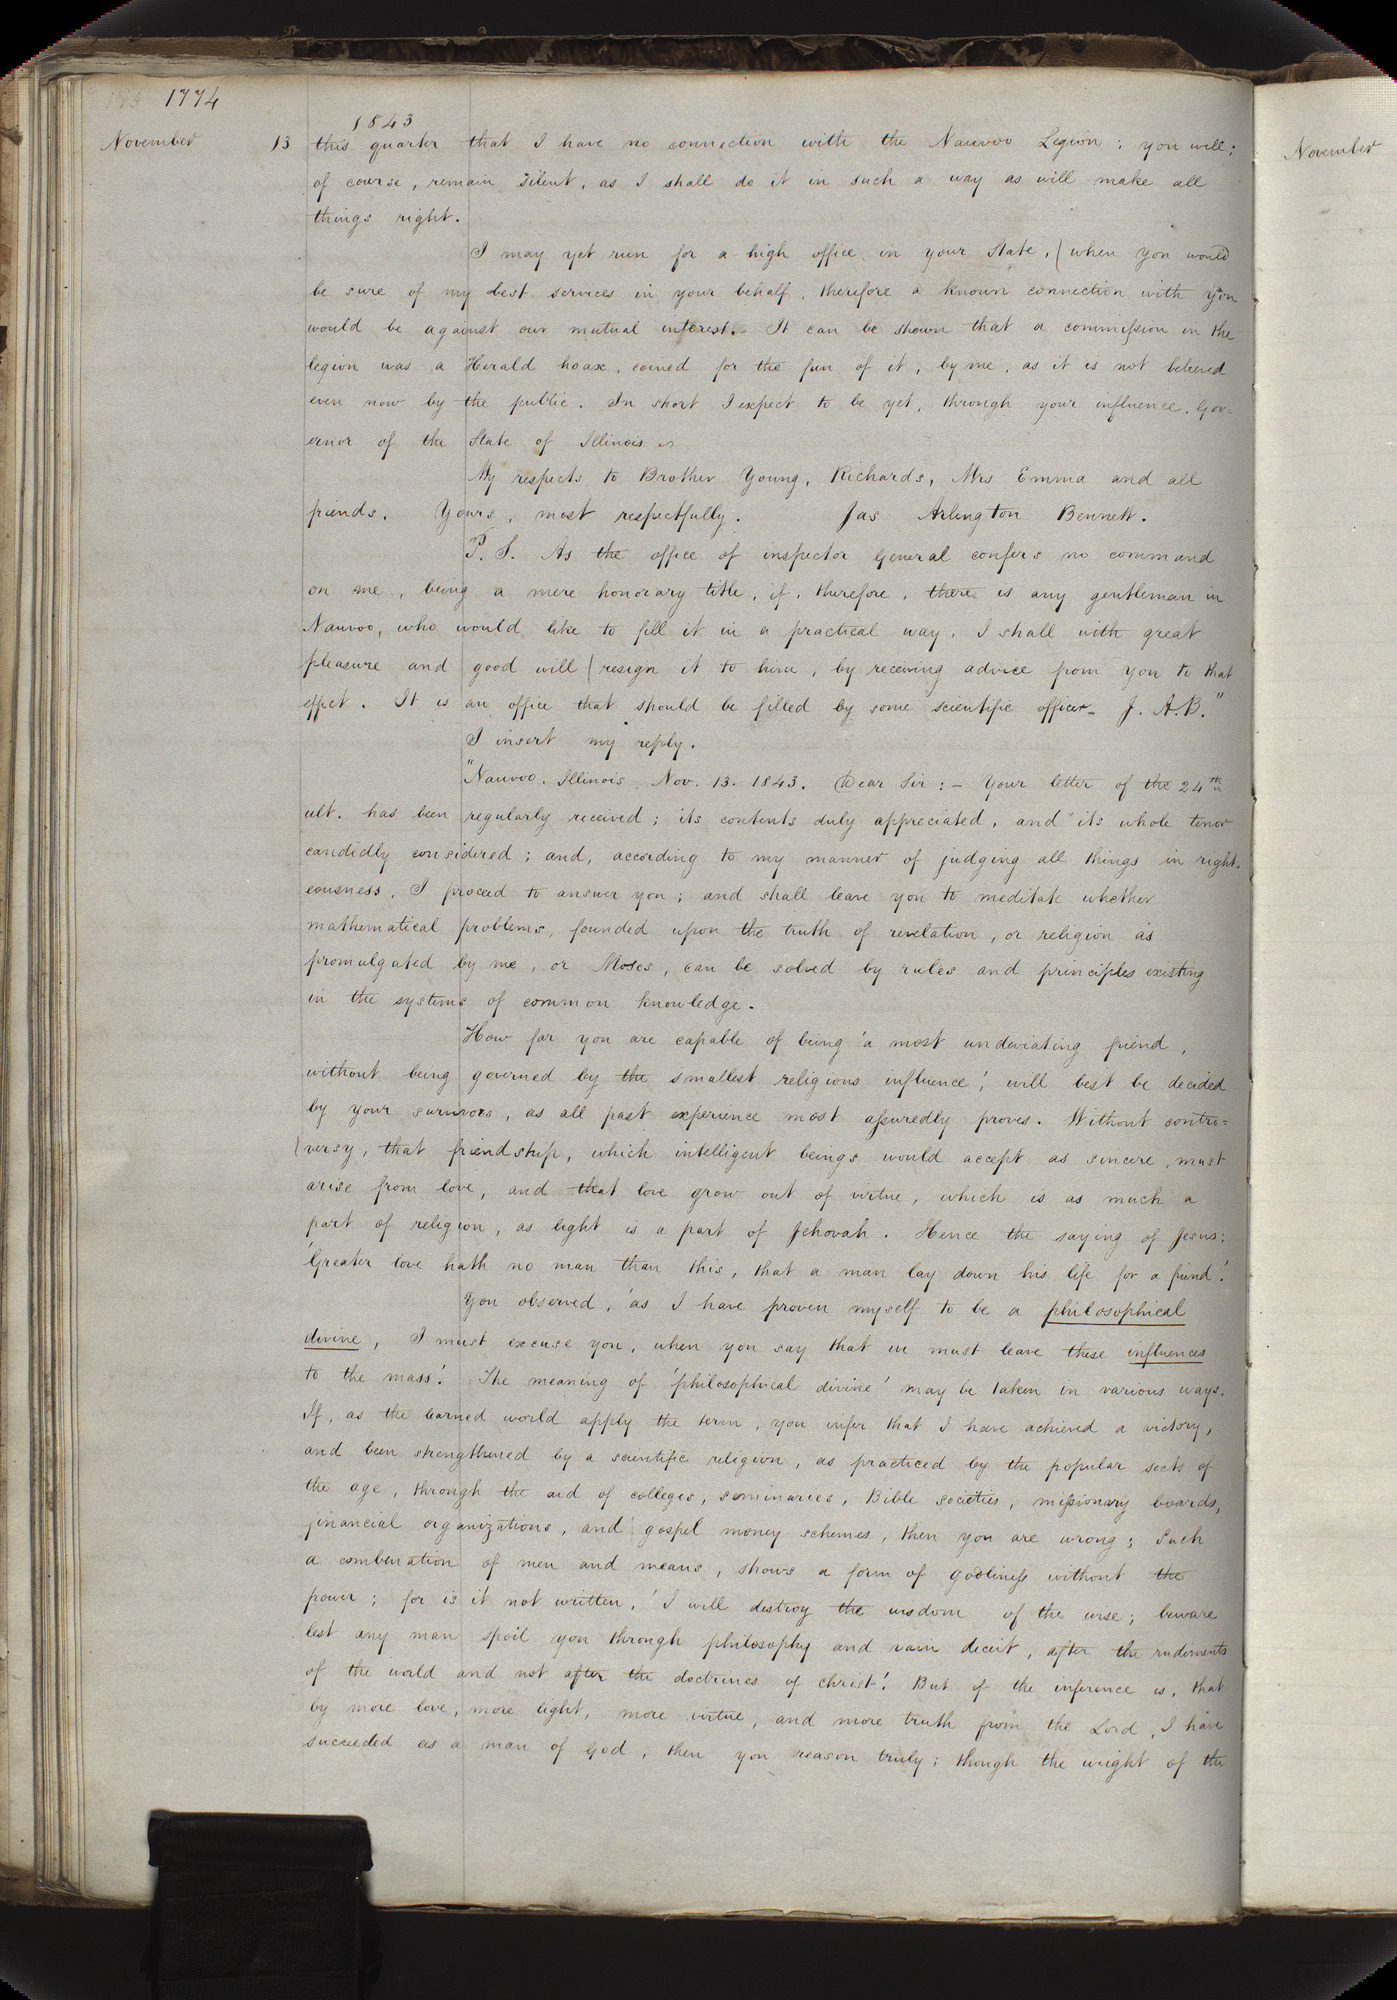 1774
1843
November 13 this quarter that I have no connection with the Nauvoo Legion; you will;
of course, remain silent, as I shall do it in such a way as will make all
things right.
I may yet run for a high office in your State, (when you would
be sure of my best services in your behalf, therefore a known connection with you
would be against our mutual interest. It can be shewn that a commission in the
legion was a Herald hoax, coined for the fun of it, by me, as it is not believed
even now by the public. In short I expect to be yet, through your influence, Gov-
ernor of the State of Illinois
My respects to Brother Young, Richards, Mrs Emma and all
friends. Yours, most respectfully. Jas Arlington Bennett.
P. S. As the office of inspector General confers no command
on me, being a mere honorary title, if, therefore, there is any gentleman in
Nauvoo, who would like to fill it in a practical way, I shall with great
pleasure and good will (resign it to him, by receiving advice from you to that
effect. It is an office that should be filled by some scientific officer— J. A. B."
I insert my reply.
"Nauvoo. Illinois. Nov. 13. 1843. Dear Sir:— Your letter of the 24th
ult. has been regularly received; its contents duly appreciated, and its whole tenor
candidly considered; and, according to my manner of judging all things in right-
eousness, I proceed to answer you; and shall leave you to meditate whether
mathematical problems, founded upon the truth of revelation, or religion as
promulgated by me, or Moses, can be solved by rules and principles existing
in the systems of common knowledge.
How far you are capable of being 'a most undeviating friend,
without being governed by the smallest religious influence', will best be decided
by your survivors, as all past experience most assuredly proves. Without contro-
(versy, that friendship, which intelligent beings would accept as sincere, must
arise from love, and that love grow out of virtue, which is as much a
part of religion, as light is a part of Jehovah. Hence the saying of Jesus:
'Greater love hath no man than this, that a man lay down his life for a friend'.
You observed, 'as I have proven myself to be a philosophical
divine, I must excuse you, when you say that we must leave these influences
to the mass'. The meaning of 'philosophical divine' may be taken in various ways.
If, as the learned world apply the term, you infer that I have achieved a victory,
and been strengthened by a scientific religion, as practiced by the popular sects of
the age, through the aid of colleges, seminaries, Bible societies, missionary boards,
financial organizations, and gospel money schemes, then you are wrong; Such
a combination of men and means, shows a form of godliness without the
power; for is it not written, 'I will destroy the wisdom of the wise; beware
lest any man spoil you through philosophy and vain deceit, after the rudiments
of the world and not after the doctrines of christ'. But if the inference is, that
by more love, more light, more virtue, and more truth from the Lord, I have
succeeded as a man of God, then you reason truly; though the weight of the
November